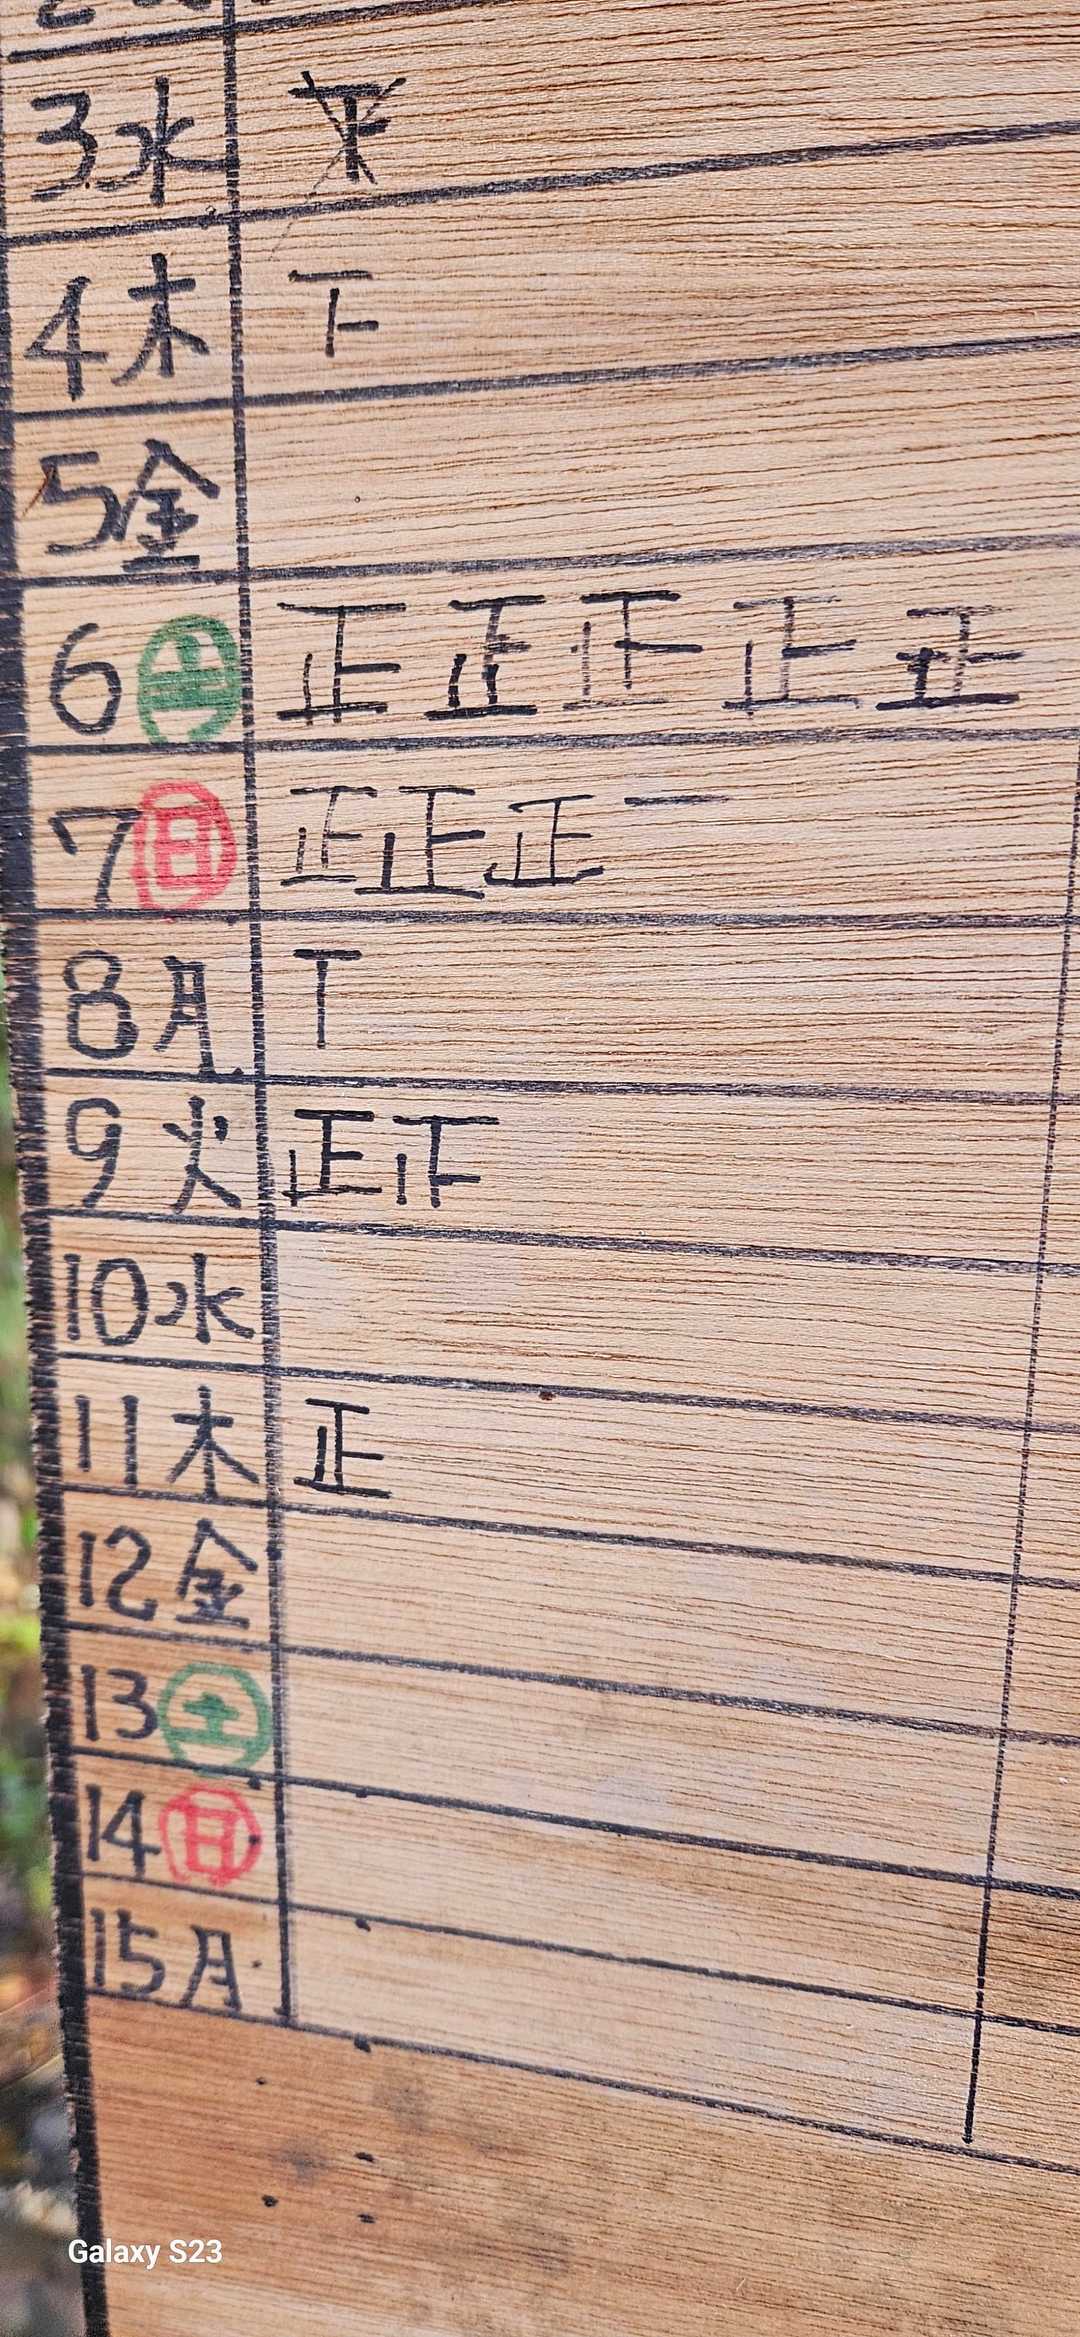 3水
4木 下
5金
6土 正正正正正
7日 正正正一
8月 丅
9火 正
10水
11木 正
12金
13土
14日
15月
Galaxy S23